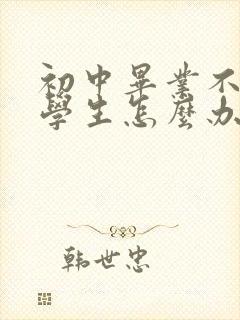 初中畢業不
學生怎麼办
韩世忠